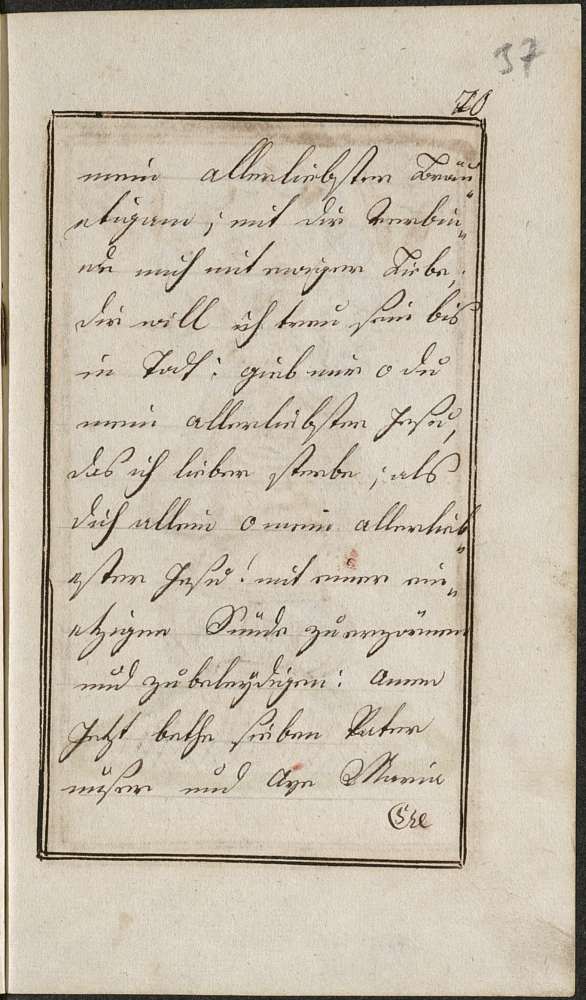 37
70
mein allerliebster Bräu„
etigam ; mit dir Verbin„
de mich mit ewiger Liebe,
dir will ich treu sein bis
in Todt : gieb mir o du
mein allerliebster Jesu,
das ich lieber sterbe ; als
dich allein o mein allerlieb„
ster Jesu ! mit einer ein„
tzigen Sünde zu erzörnen
und zu beleydigen : Amen
Jetzt bethe sieben Vater
unser und Ave Maria